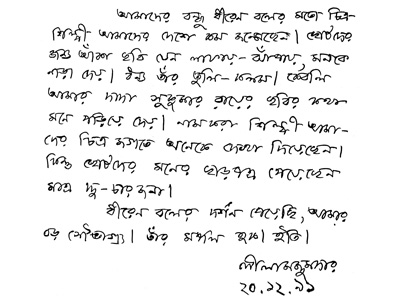 আমাদের বন্ধু ধীরেন বলের মতো চিত্র
শিল্পী আমাদের দেশে কম জন্মেছেন। ছোটদের
জন্য আঁকা ছবি যেন লাফায়-ঝাঁপায়, মনকে
নাড়া দেয়। ধন্য তাঁর তুলি-কলম। কেবলি
আমার দাদা সুকুমার রায়ের ছবির কথা
মনে পড়িয়ে দেয়। নামকরা শিল্পী আমা-
দের চিত্র জগতে অনেকে দেখা দিয়েছেন।
কিন্তু ছোটদের মনের ছাড়পত্র পেয়েছেন
মাত্র দু-চার জনা।
ধীরেন বলের দর্শন পেয়েছি, আমার
বড় সৌভাগ্য। তাঁর মঙ্গল হক। ইতি।
লীলা মজুমদার
২০.১২.৯১